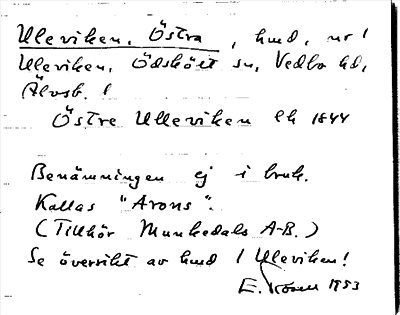 Uleviken, Östra, hmd, nr 1
Uleviken, Ödskölt sn, Vedbo hd,
Älvsb. l
Östre Ulleviken Ek 1844
Benämningen ej i bruk.
Kallas "Arons".
(Tillhör Munkedals A-B.)
Se översikt av hmd 1 Uleviken!
E. 1953